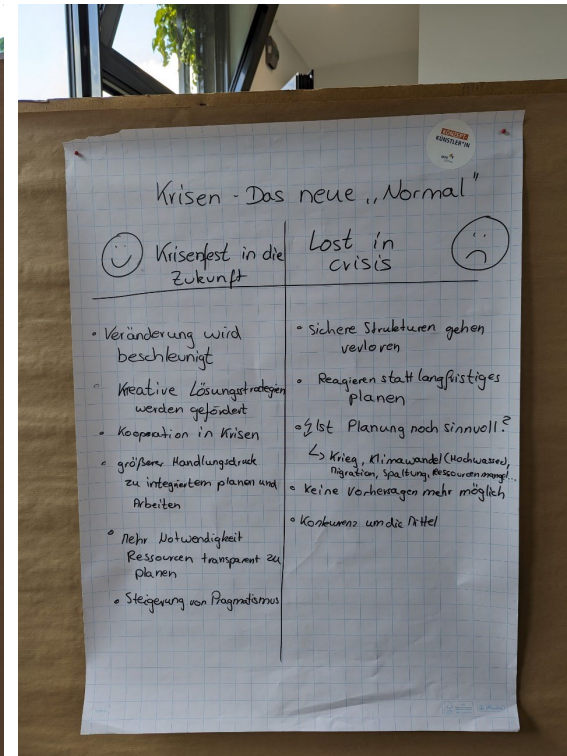 KONZEPT-
KÜNSTLER*IN
Krisen - Das neue „Normal"
Krisenfest in die
Zukunft
• Veränderung wird
beschleunigt
• Kreative Lösungsstrategien
werden gefördert
• Kooperation in Krisen
• größerer Handlungsdruck
zu integriertem planen und
Arbeiten
• Mehr Notwendigkeit
Ressourcen transparent zu
planen
• Steigerung von Pragmatismus
Lost in
crisis
• Sichere Strukturen gehen
verloren
• Reagieren statt langfristiges
planen
• Ist Planung noch sinnvoll?
↳ Krieg, Klimawandel (Hochwasser),
Migration, Spaltung, Ressourcenmangel...
• Keine Vorhersagen mehr möglich
• Konkurenz um die Mittel